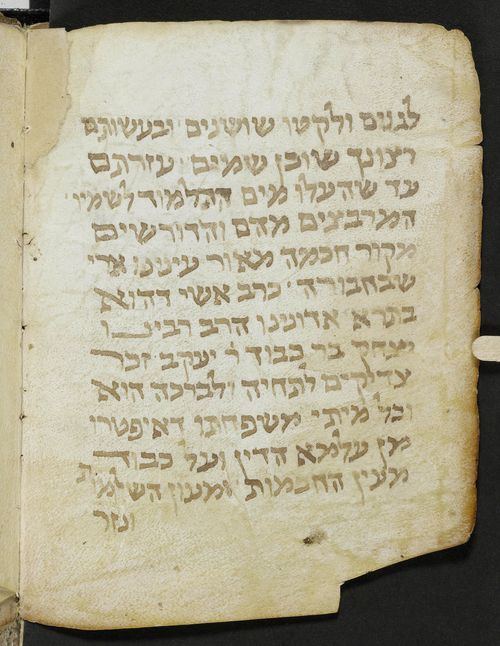 לגנים ולקטו שושנים ובעשותם
רצונך שוכן שמים עזרתם
עד שהעלו מים התלמוד לשמי
המרבצים מדם והדורשים
מקור חכמה מאור עינינו ארי
שבחבורה כרב אשי דהוא
בתרא אדונינו הרב רבינו
יצחק בר כבוד ר יעקב זכר
צדיקים לתחיה ולברכה הוא
וכל מיתי משפחתו דאיפטרו
מן עלמא הדין ועל כבוד
מעין החכמות ומעון השלמות
ונזר